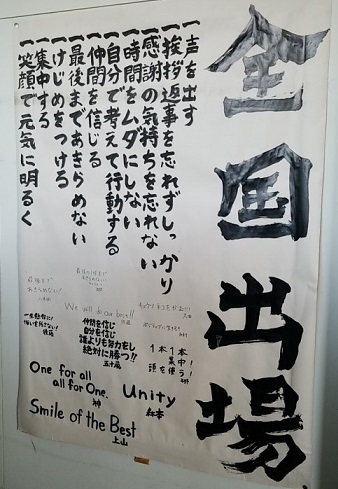 全国出場
一声を出す
一挨拶返事を忘れずしっかり
一感謝の気持ちを忘れない
一時間をムダにしない
一自分で考えて行動する
一仲間を信じる
一最後まであきらめない
一けじめをつける
一集中する
一笑顔で元気に明るく
最後まで
あきらめない!
We will do our best!!
仲間を信じ
自分を信じ
誰よりも努力をし
絶対に勝つ!!
1本1本
集中!
頭を使う!
One for all
all for One.
Unity
Smile of the Best
上山